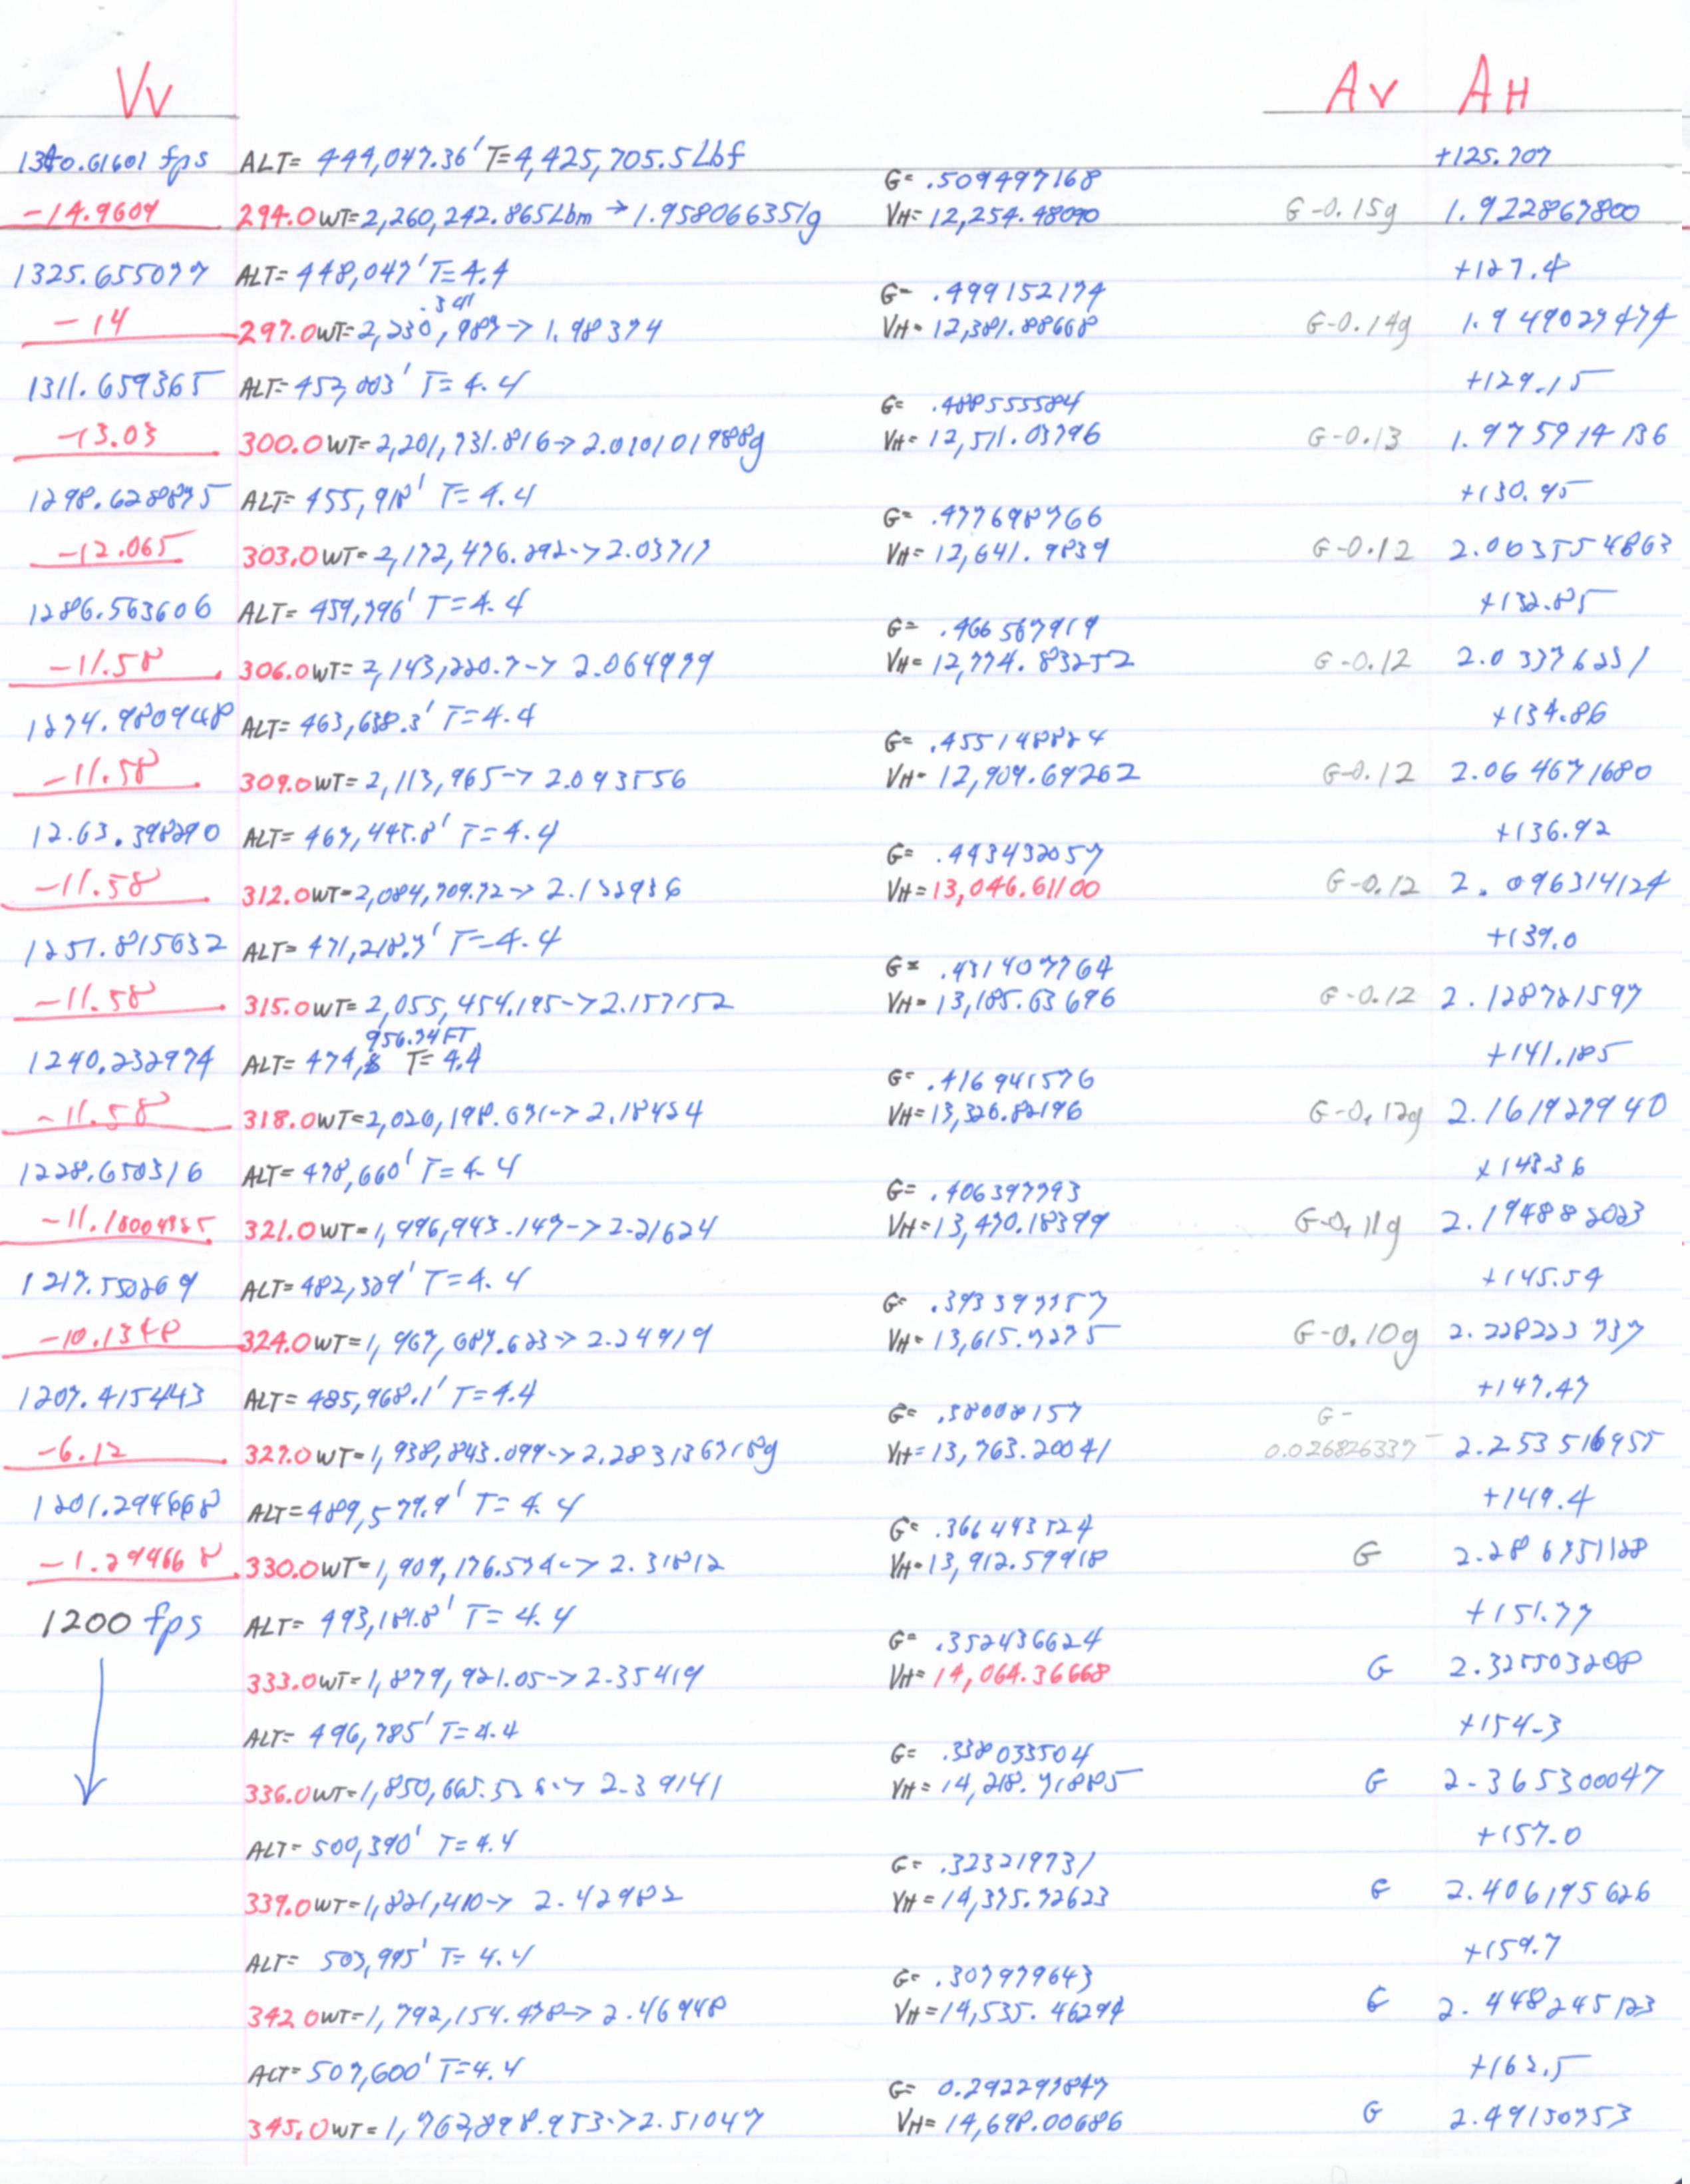 Vv Av AH
1340.61601 fps ALT= 444,047.36' T=4,425,705.5Lbf +125.707
G= .509497168
-14.9609 294.0 WT=2,260,242.865Lbm → 1.958066351g VH=12,254.48090 G-0.15g 1.922867800
1325.655077 ALT= 448,047' T=4.4 +127.4
.341 G= .499152174
-14 297.0 WT=2,230,987-> 1.98374 VH=12,381.88668 G-0.14g 1.949029474
1311.659365 ALT=452,003' T=4.4 +129.15
G= .488555584
-13.03 300.0 WT=2,201,731.816->2.010101988g VH=12,511.03796 G-0.13 1.975914136
1298.628875 ALT= 455,918' T=4.4 +130.95
G= .477698766
-12.065 303.0 WT=2,172,476.292->2.03717 VH=12,641.9839 G-0.12 2.003554863
1286.563606 ALT= 459,796' T=4.4 +132.85
G= .466567919
-11.58 306.0 WT=2,143,220.7-> 2.064979 VH=12,774.83252 G-0.12 2.033762351
1274.980948 ALT= 463,638.3' T=4.4 +134.86
G= .455148824
-11.58 309.0 WT=2,113,965-> 2.093556 VH=12,909.69262 G-0.12 2.064671680
12.63.398290 ALT= 467,445.8' T=4.4 +136.92
G= .443432057
-11.58 312.0 WT=2,084,709.72-> 2.122936 VH=13,046.61100 G-0.12 2.096314124
1251.815632 ALT= 471,218.7' T=4.4 +139.0
G= .431407764
-11.58 315.0 WT=2,055,454.195->2.153152 VH=13,185.63696 G-0.12 2.128721597
956.74FT
1240.232974 ALT= 474, T=4.4 +141.185
G= .416941576
-11.58 318.0 WT=2,026,198.671-> 2.18424 VH=13,326.82196 G-0.12g 2.161927940
1228.650316 ALT= 478,660' T=4.4 +143.36
G= .406397793
-11.1000485 321.0 WT=1,996,943.147-> 2.21624 VH=13,470.18399 G-0.11g 2.194882023
1217.550269 ALT=482,329' T=4.4 +145.54
G= .393397357
-10.1348 324.0 WT=1,967,687.623-> 2.24919 VH=13,615.7275 G-0.10g 2.228223737
1207.415443 ALT= 485,968.1' T=4.4 +147.47
G= .38008157 G-
-6.12 327.0 WT=1,938,843.099-> 2.283136718g VH=13,763.20041 0.026826337 2.253516955
1201.294668 ALT=489,579.9' T=4.4 +149.4
G= .366493524
-1.294668 330.0 WT=1,909,176.574-> 2.31812 VH=13,912.59918 G 2.286751128
1200 fps ALT= 493,181.8' T=4.4 +151.77
G= .352436624
333.0 WT=1,879,921.05-> 2.35419 VH=14,064.36668 G 2.325503208
ALT= 496,785' T=4.4 +154.3
G= .338033504
336.0 WT=1,850,665.5 -> 2.39141 VH=14,218.71885 G 2.365300047
ALT= 500,390' T=4.4 +157.0
G= .323219731
339.0 WT=1,821,410-> 2.42982 VH=14,375.72623 G 2.406195626
ALT= 503,995' T=4.4 +159.7
G= .307979643
342.0 WT=1,792,154.478-> 2.46948 VH=14,535.46294 G 2.448245123
ALT= 507,600' T=4.4 +162.5
G= 0.292293847
345.0 WT=1,762,898.953->2.51047 VH=14,698.00686 G 2.49150753